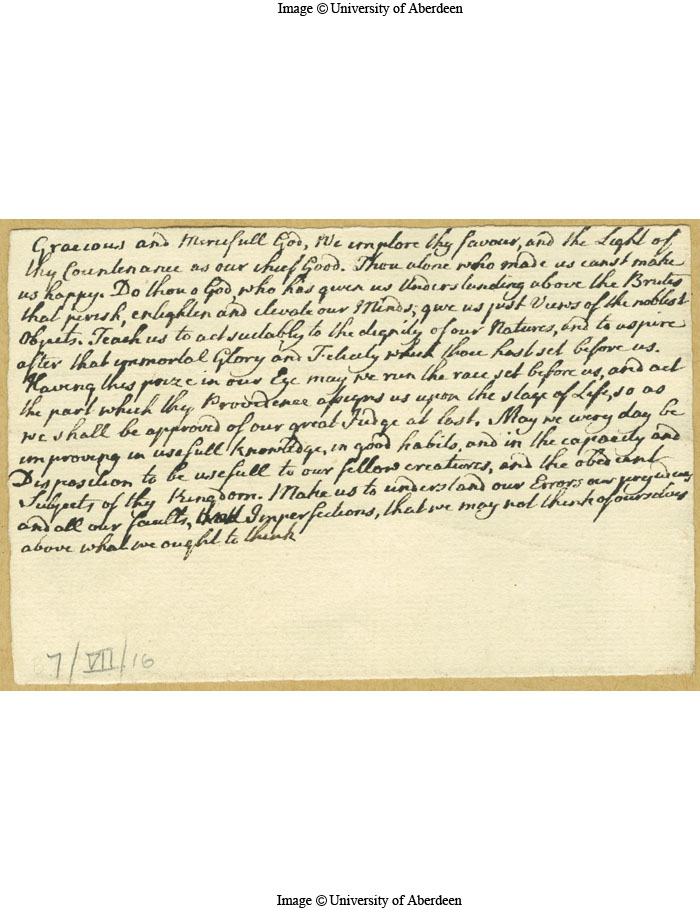 Image © University of Aberdeen
Gracious and Mercifull God, We implore thy favour, and the Light of
thy Countenance as our chief Good. Thou alone who made us canst make
us happy. Do thou o God who has given us Understanding above the Brutes
that perish, enlighten and elevate our Minds, give us just Views of the noblest
Objects. Teach us to act suitably to the dignity of our Natures, and to aspire
after that immortal Glory and Felicity which thou hast set before us.
Having this prize in our Eye may we run the race set before us, and act
the part which thy Providence assigns us upon the stage of Life, so as
we shall be approved of our great Judge at last. May we every day be
improving in usefull knowledge, in good habits, and in the capacity and
Disposition to be usefull to our fellow creatures, and the obedient
Subjects of thy Kingdom. Make us to understand our Errors our prejudices
and all our faults, Imperfections, that we may not think of ourselves
above what we ought to think
7/VII/16
Image © University of Aberdeen